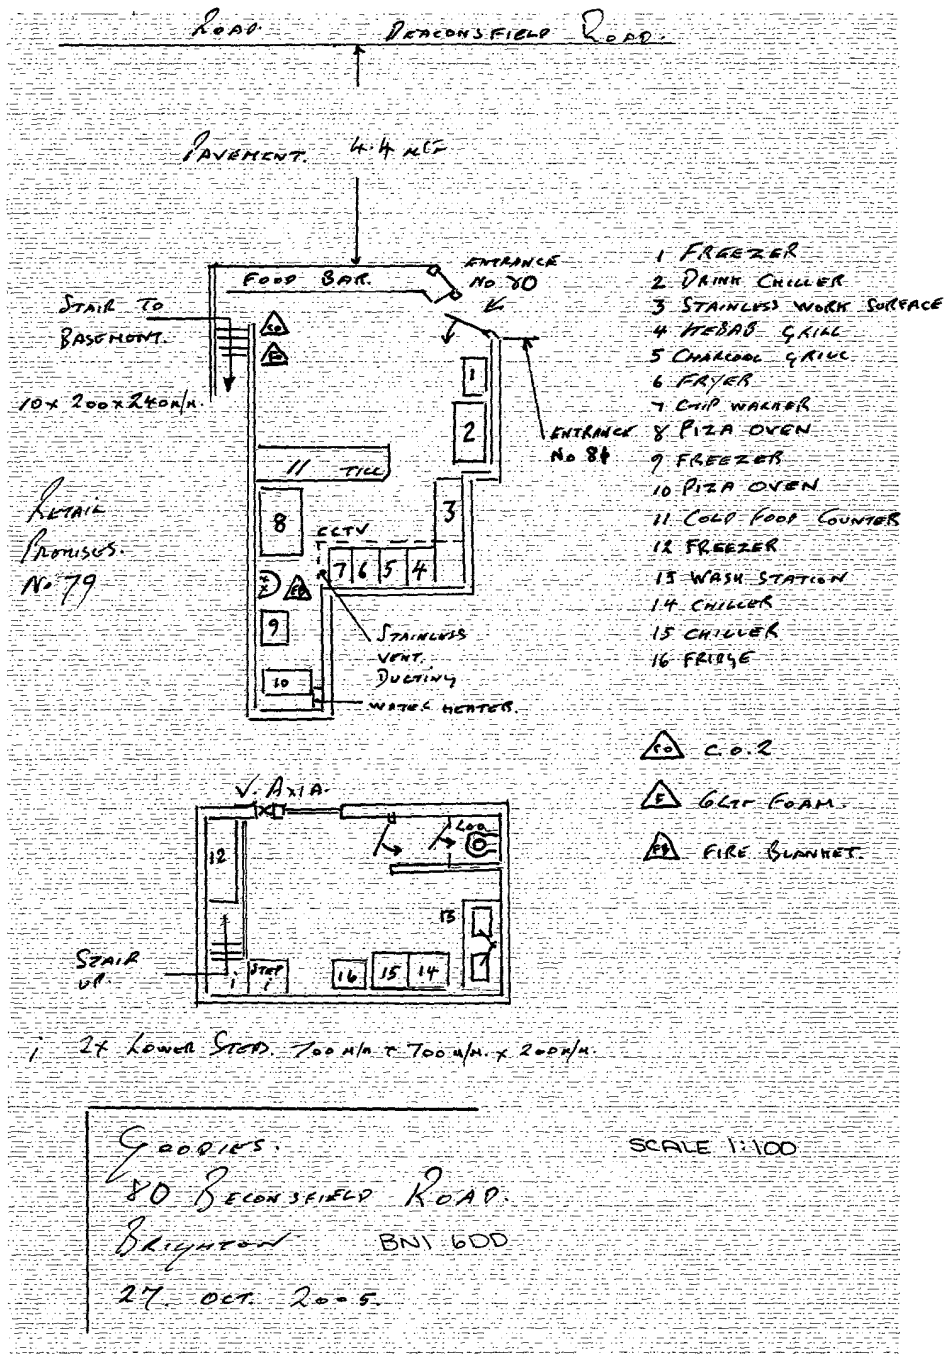 ROAD. BEACONSFIELD ROAD.
PAVEMENT. 4.4 MTR
ENTRANCE
No 80
FOOD BAR.
STAIR TO
BASEMENT.
CO
10 x 200 x 240 M/M.
1
2
ENTRANCE
No 84
11 TILL
RETAIL
PREMISES.
No 79
8
CCTV
3
7 6 5 4
FB
9
STAINLESS
VENT.
DUCTING
10
WATER HEATER.
1 FREEZER
2 DRINK CHILLER
3 STAINLESS WORK SURFACE
4 KEBAB GRILL
5 CHARCOAL GRILL
6 FRYER
7 CHIP WARMER
8 PIZA OVEN
9 FREEZER
10 PIZA OVEN
11 COLD FOOD COUNTER
12 FREEZER
13 WASH STATION
14 CHILLER
15 CHILLER
16 FRIDGE
CO C.O.2
F 6LTR FOAM.
FB FIRE BLANKET.
V. AXIA.
LOO
12
13
STAIR
UP.
i
STEP
i
16 15 14
i 2x LOWER STEPS. 700 M/M x 700 M/M. x 200 M/M.
GOODIES.
SCALE 1:100
80 BECONSFIELD ROAD.
BRIGHTON BN1 6DD
27. OCT. 2005.